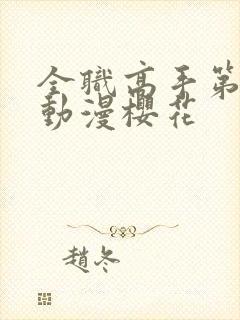 全職高手第
動漫櫻花
趙冬